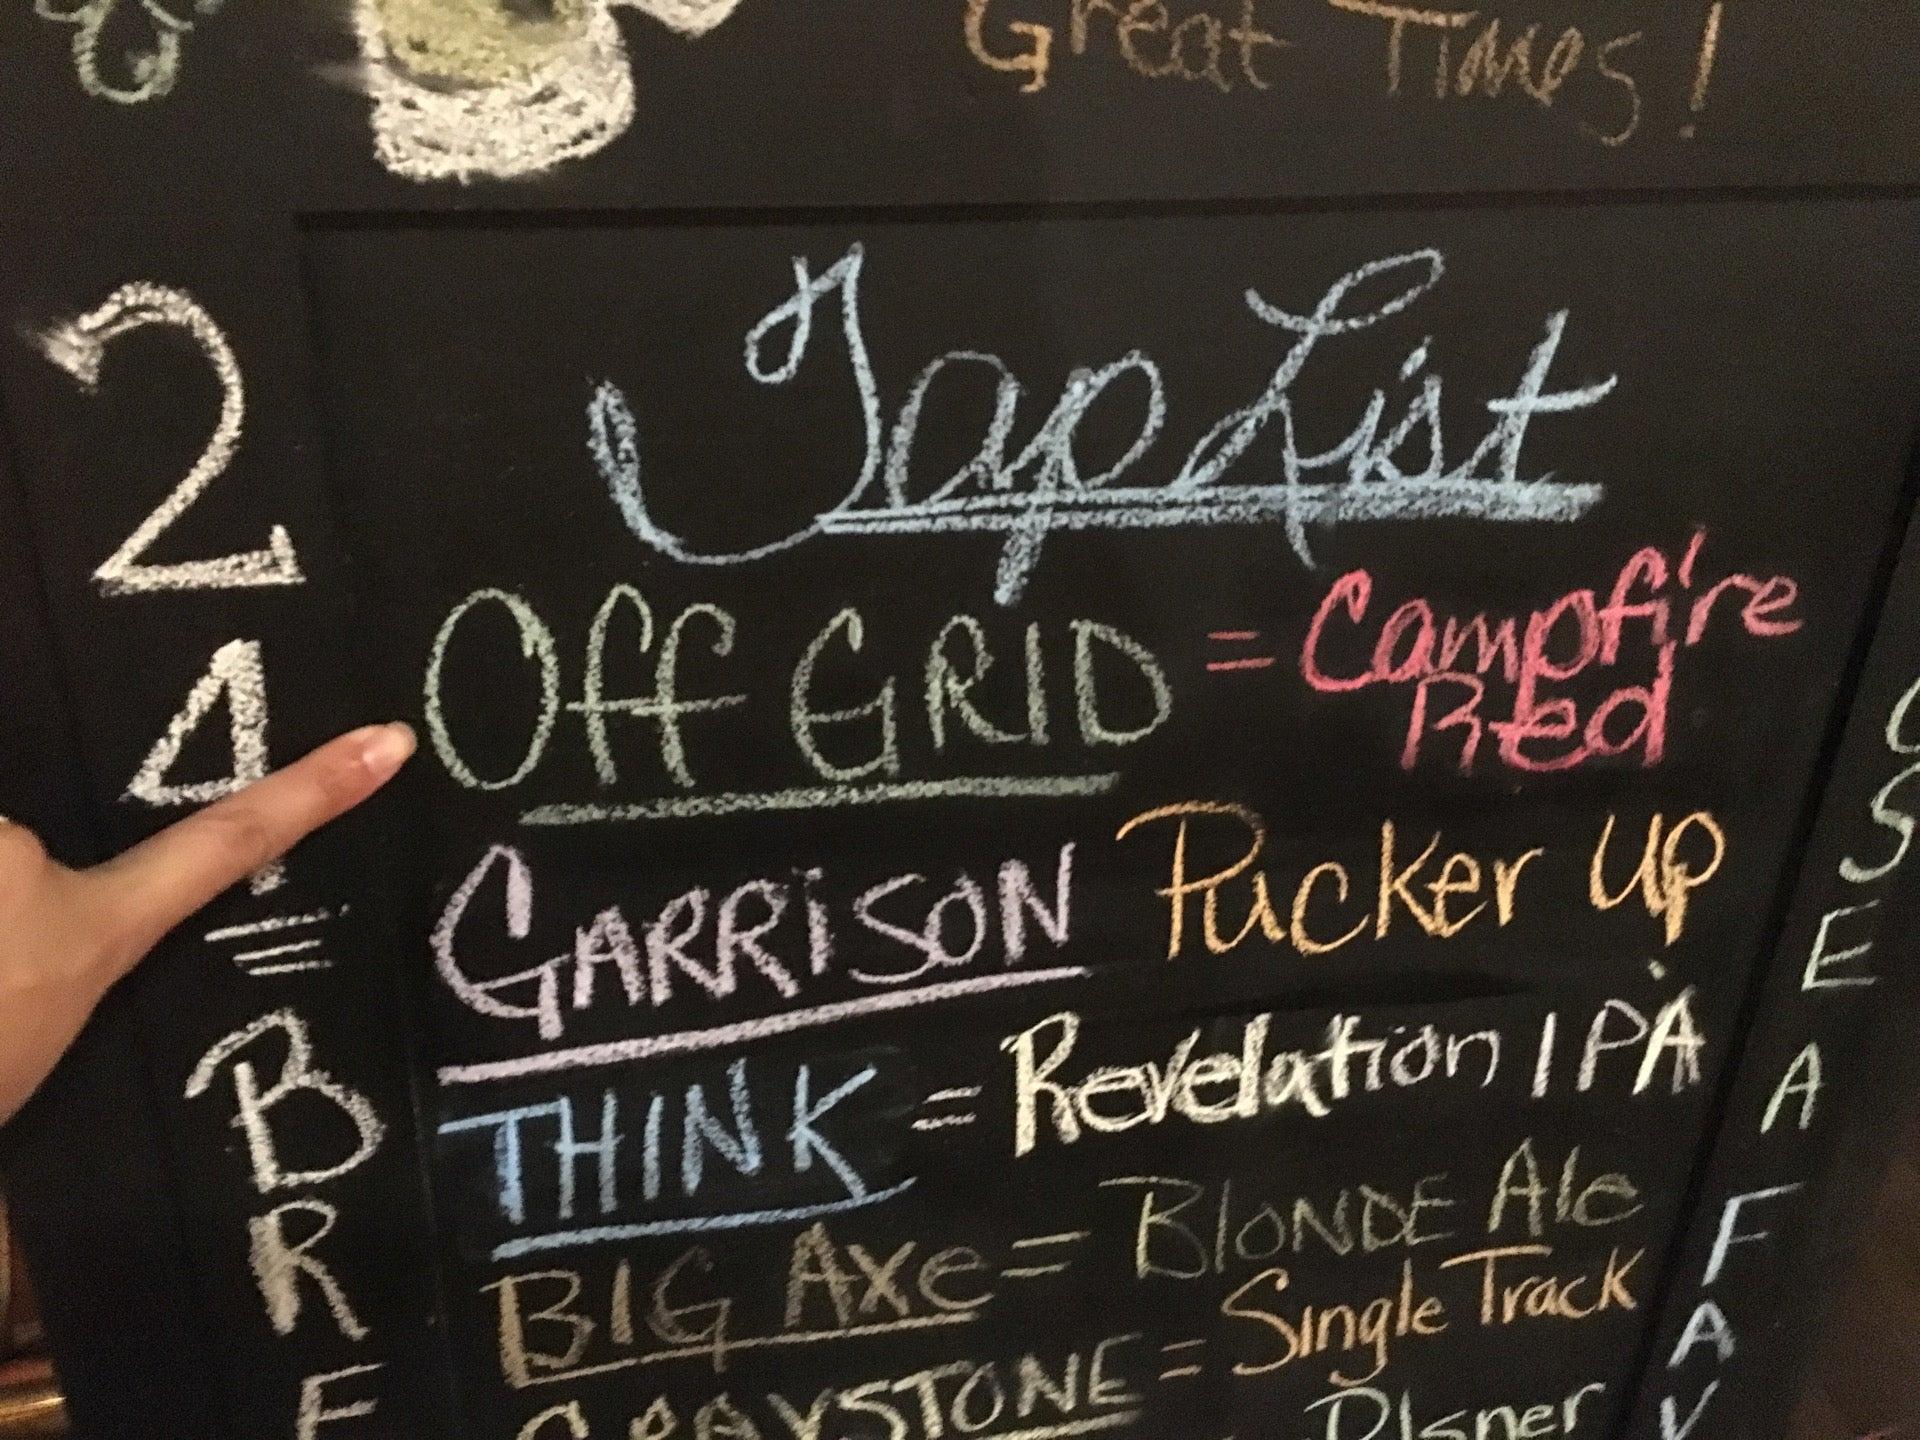 Great Times!
Tap List
Off GRID = Campfire Red
GARRiSON Pucker Up
THINK = Revelation IPA
BIG AXe = BlONDE Ale
GRAYSTONE = Single Track
Pilsner
24
BRE
SEA
FAV